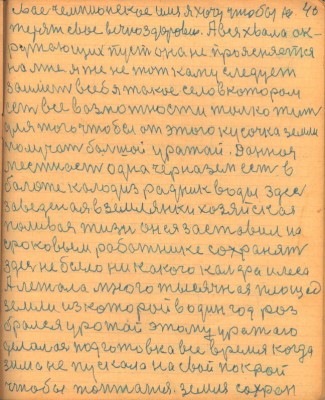 свое чемпионское имя я хочу чтобы не 40
терят свое вечноздоровию. А вся хвала ок-
ружающих пуст она не проясняется
на мне. я же не тот кому следует
заимет в себя такое село в котором
ест все возможности только жит
для того чтобы от этого кусочка земли
получат болшой уражай. Данная
местност одна черназем ест в
болоте колодиз радник воды здес
заведеная в землянки хозяйская
паливая жизн он ся заставил на
сроковым работнике сохранят
здес не было ни какого калхда и леса
А лежала много тысячная площад
земли из которой в один год роз
брался урожай этому уражаю
делалас подготовка все время когда
зима не пускала на свой покрой
чтобы топтатия. земля сохрон